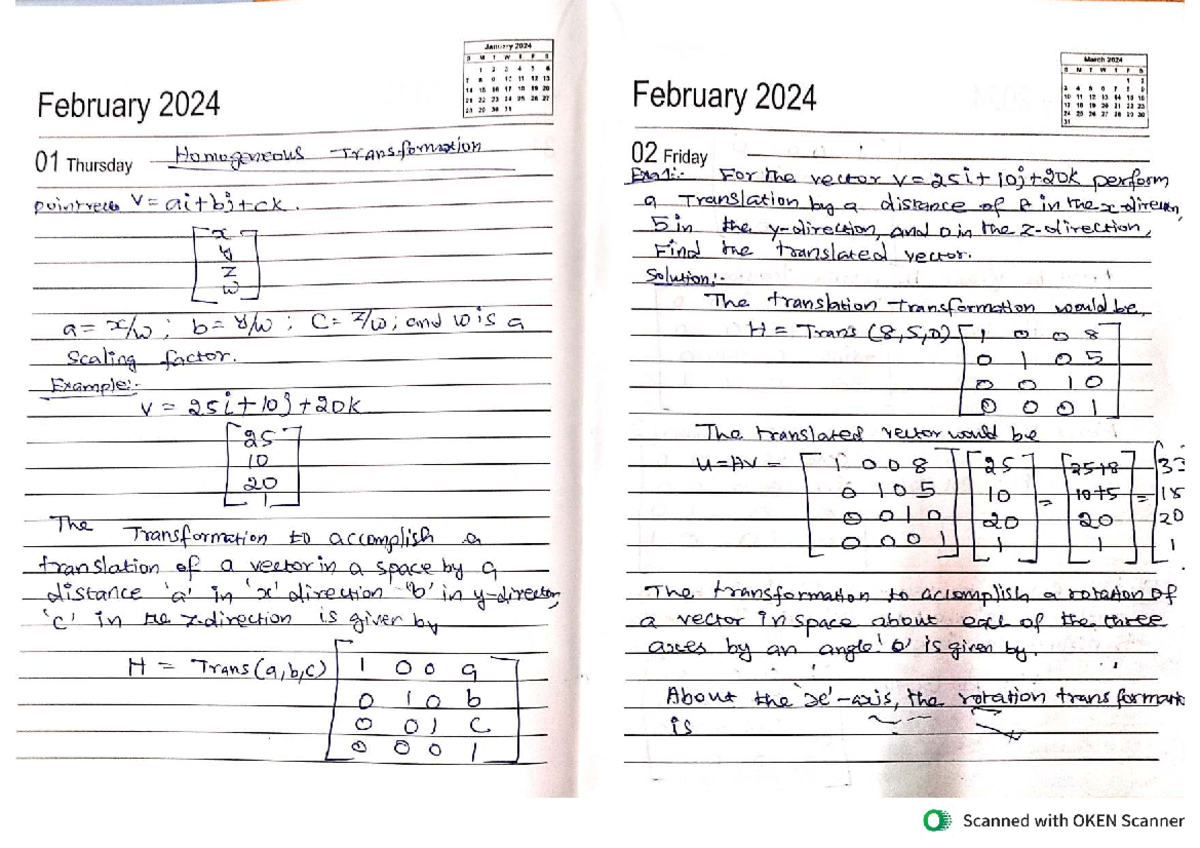 January 2024
S M T W T F S
1 2 3 4 5 6
7 8 9 10 11 12 13
14 15 16 17 18 19 20
21 22 23 24 25 26 27
28 29 30 31
February 2024
01 Thursday
Homogeneous Transformation
V = ai+bj+ck.
x
y
z
w
a = x/w ; b = y/w ; C = z/w ; and w is a
Scaling factor.
Example:-
V = 25i+10j+20k
25
10
20
1
The Transformation to accomplish a
translation of a vector in a space by a
distance 'a' in 'x' direction 'b' in y-direction,
'c' in the z-direction is given by
H = Trans(a,b,c) 1 0 0 a
0 1 0 b
0 0 1 C
0 0 0 1
March 2024
S M T W T F S
1 2
3 4 5 6 7 8 9
10 11 12 13 14 15 16
17 18 19 20 21 22 23
24 25 26 27 28 29 30
31
February 2024
02 Friday
For the vector V = 25i+10j+20k perform
a Translation by a distance of 8 in the x-direction,
5 in the y-direction, and 0 in the z-direction,
Find the translated vector.
Solution:-
The translation transformation would be,
H = Trans (8,5,0) 1 0 0 8
0 1 0 5
0 0 1 0
0 0 0 1
The translated vector would be
U = HV = 1 0 0 8 25 25+8 33
0 1 0 5 10 = 10+5 = 15
0 0 1 0 20 20 20
0 0 0 1 1 1 1
The transformation to accomplish a rotation of
a vector in space about each of the three
axes by an angle 'θ' is given by.
About the 'x'-axis, the rotation transformation
is
Scanned with OKEN Scanner